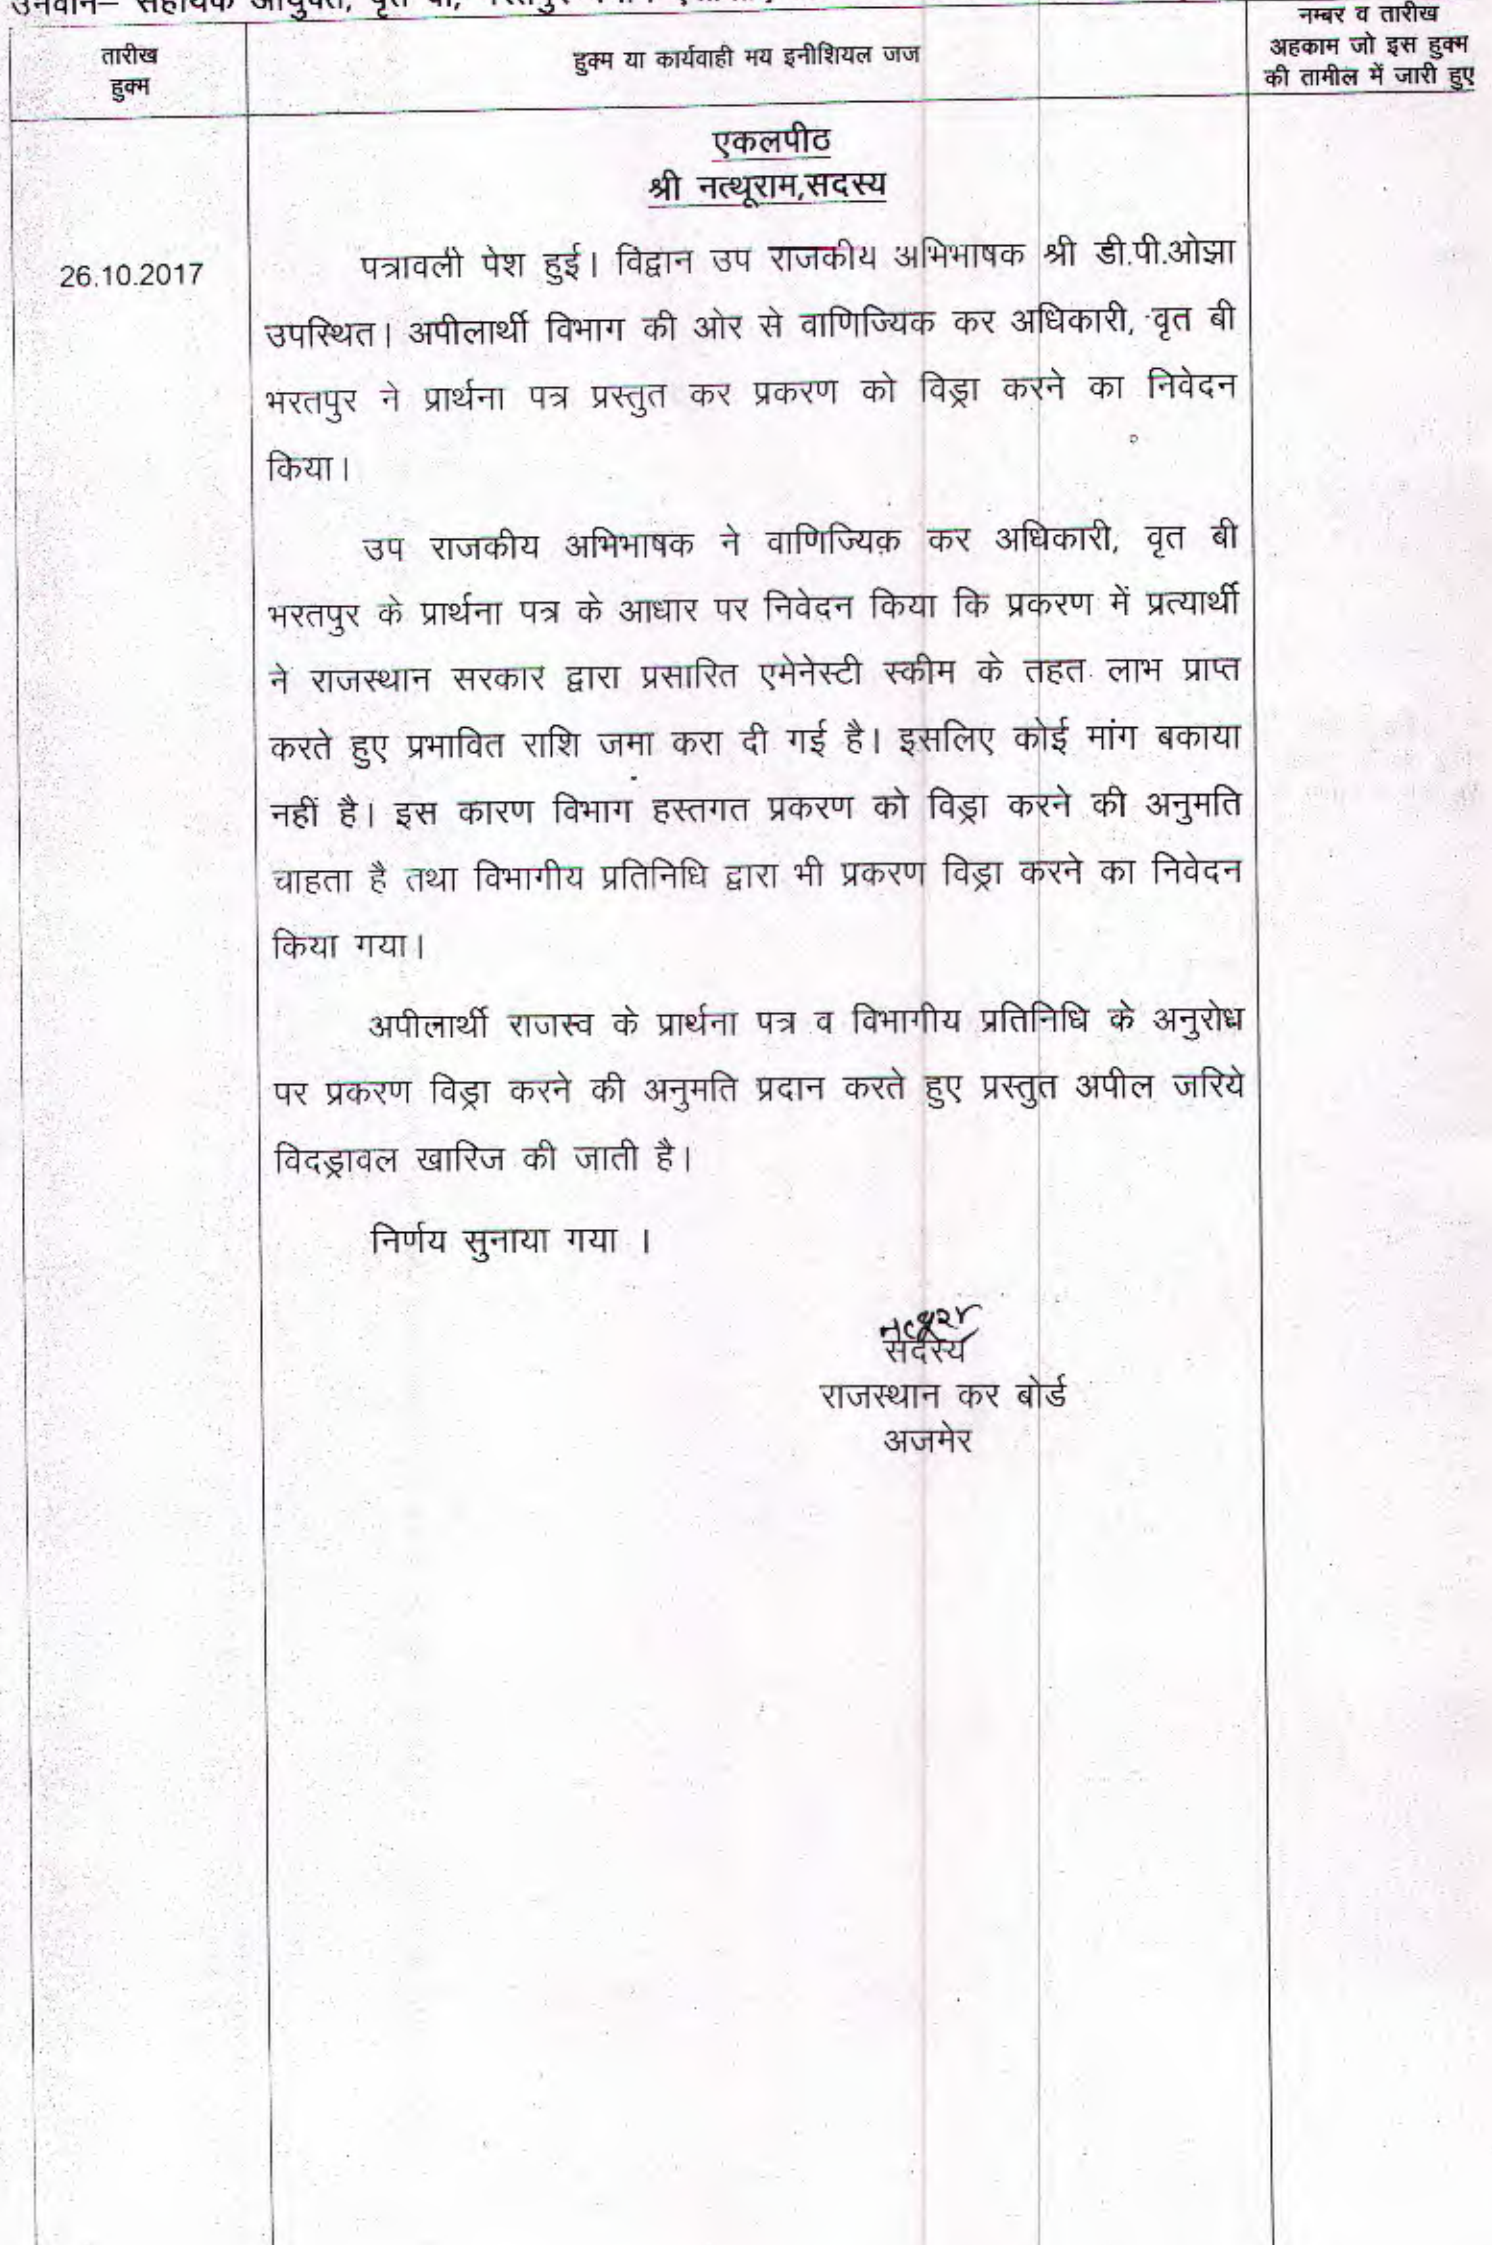 उनवान– सहायक आयुक्त, वृत बी,
तारीख
हुक्म
हुक्म या कार्यवाही मय इनीशियल जज
नम्बर व तारीख
अहकाम जो इस हुक्म
की तामील में जारी हुए
एकलपीठ
श्री नत्थूराम,सदस्य
26.10.2017
पत्रावली पेश हुई। विद्वान उप राजकीय अभिभाषक श्री डी.पी.ओझा
उपस्थित। अपीलार्थी विभाग की ओर से वाणिज्यिक कर अधिकारी, वृत बी
भरतपुर ने प्रार्थना पत्र प्रस्तुत कर प्रकरण को विड्रा करने का निवेदन
किया।
उप राजकीय अभिभाषक ने वाणिज्यिक कर अधिकारी, वृत बी
भरतपुर के प्रार्थना पत्र के आधार पर निवेदन किया कि प्रकरण में प्रत्यार्थी
ने राजस्थान सरकार द्वारा प्रसारित एमेनेस्टी स्कीम के तहत लाभ प्राप्त
करते हुए प्रभावित राशि जमा करा दी गई है। इसलिए कोई मांग बकाया
नहीं है। इस कारण विभाग हस्तगत प्रकरण को विड्रा करने की अनुमति
चाहता है तथा विभागीय प्रतिनिधि द्वारा भी प्रकरण विड्रा करने का निवेदन
किया गया।
अपीलार्थी राजस्व के प्रार्थना पत्र व विभागीय प्रतिनिधि के अनुरोध
पर प्रकरण विड्रा करने की अनुमति प्रदान करते हुए प्रस्तुत अपील जरिये
विदड्रावल खारिज की जाती है।
निर्णय सुनाया गया ।
सदस्य
राजस्थान कर बोर्ड
अजमेर